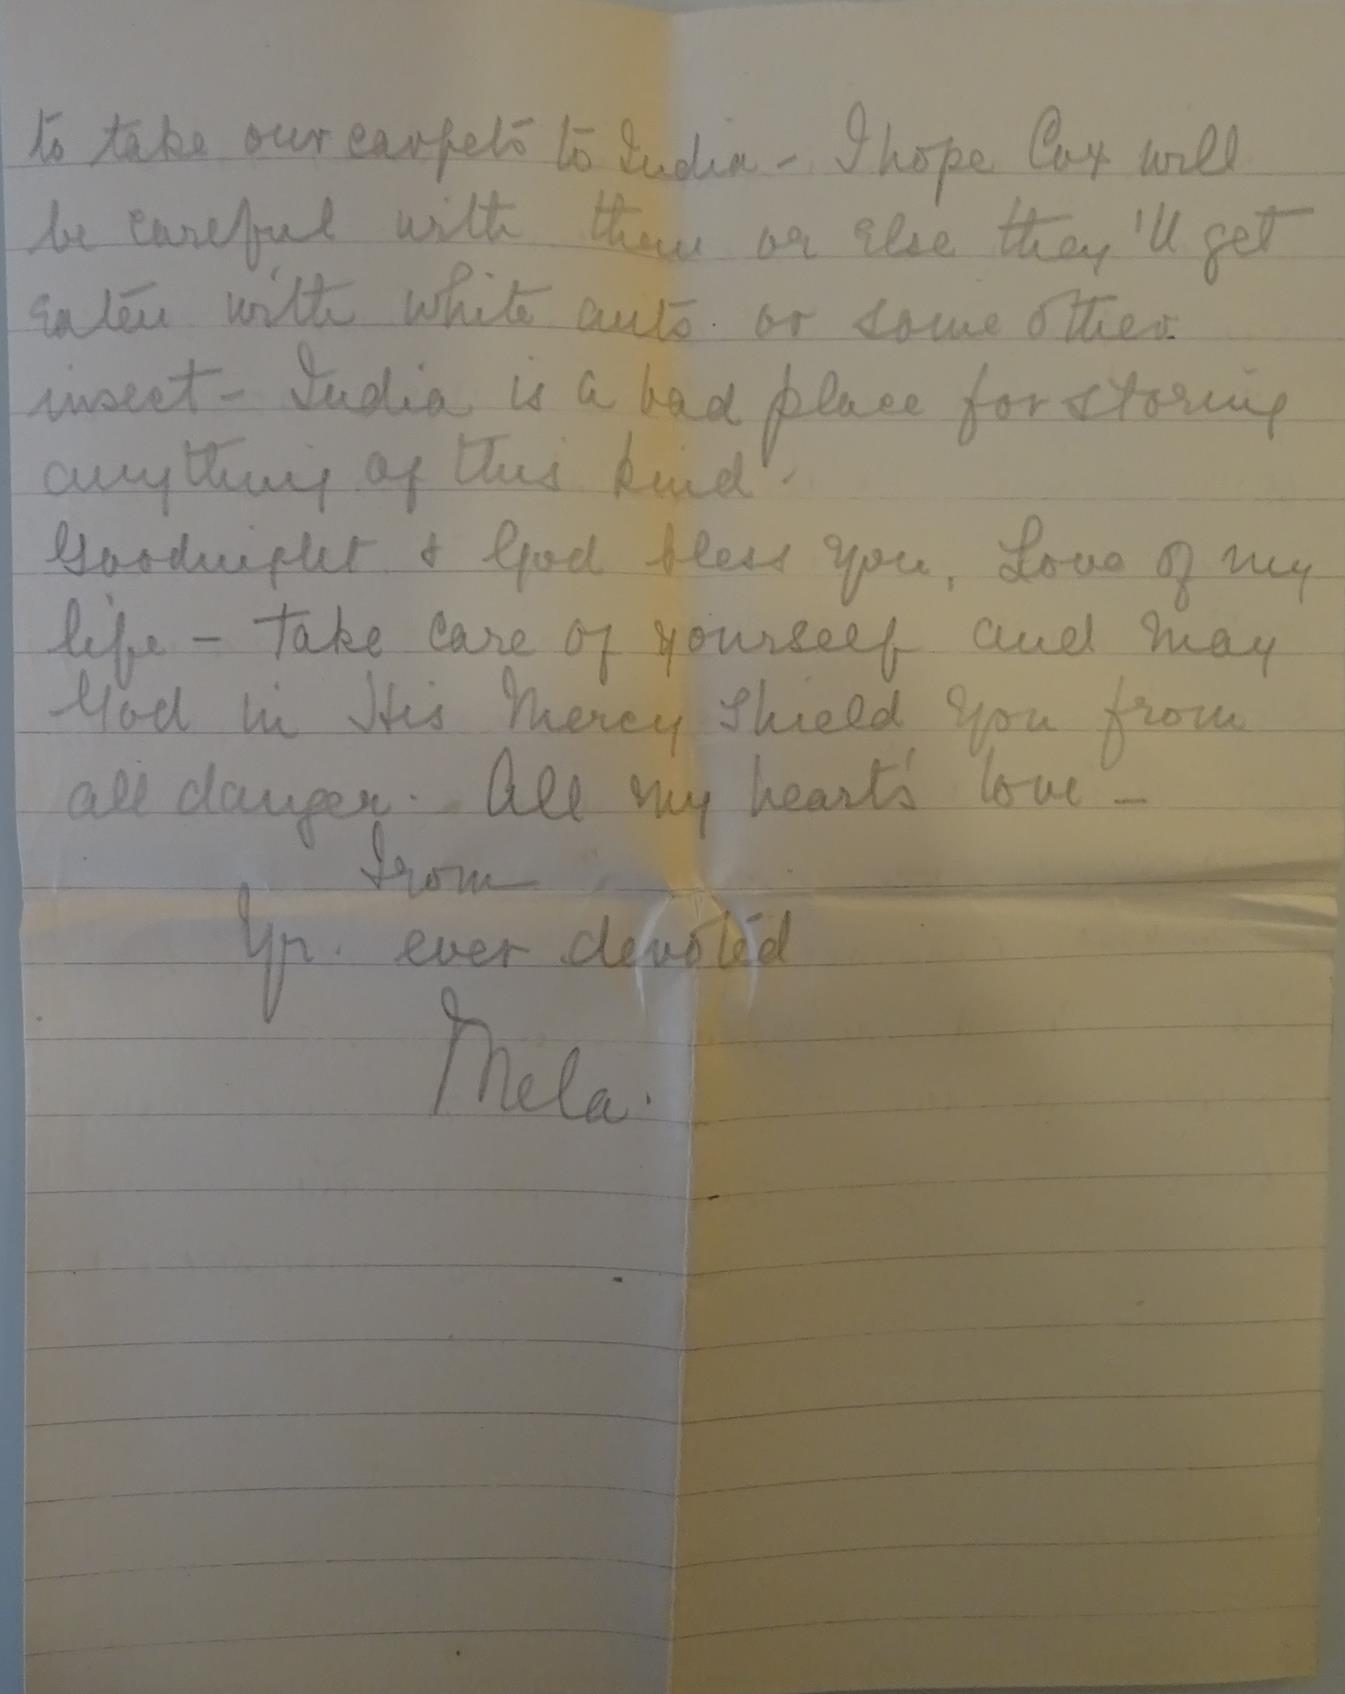 to take our carpets to India - I hope Cox will
be careful with them or else they'll get
eaten with white ants. or some other
insect - India is a bad place for storing
anything of this kind.
Goodnight & God bless you, Love of my
life - Take care of yourself and may
God in His Mercy shield you from
all danger. All my heart's love -
From
Yr. ever devoted
Mela.